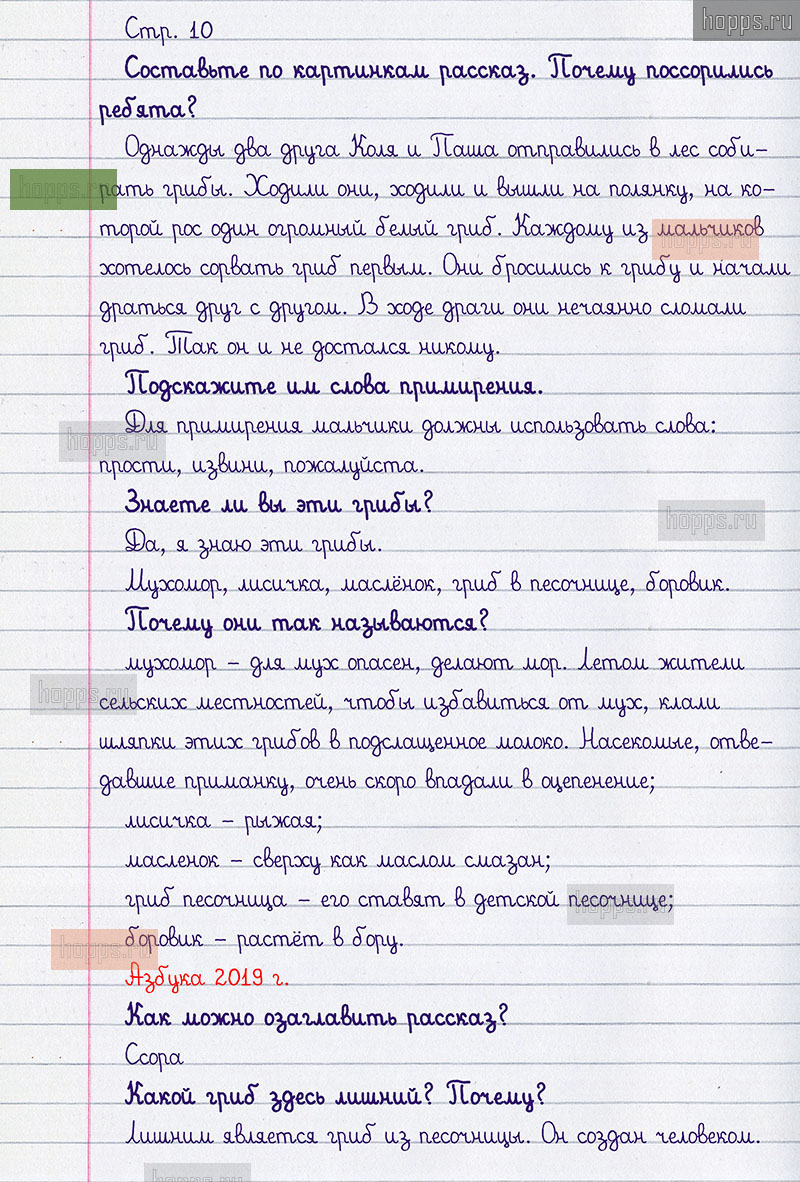 hopps.ru
Стр. 10
Составьте по картинкам рассказ. Почему поссорились
ребята?
Однажды два друга Коля и Паша отправились в лес соби-
рать грибы. Ходили они, ходили и вышли на полянку, на ко-
торой рос один огромный белый гриб. Каждому из мальчиков
хотелось сорвать гриб первым. Они бросились к грибу и начали
драться друг с другом. В ходе драги они нечаянно сломали
гриб. Так он и не достался никому.
Подскажите им слова примирения.
Для примирения мальчики должны использовать слова:
прости, извини, пожалуйста.
Знаете ли вы эти грибы?
Да, я знаю эти грибы.
Мухомор, лисичка, маслёнок, гриб в песочнице, боровик.
Почему они так называются?
мухомор – для мух опасен, делают мор. Летом жители
сельских местностей, чтобы избавиться от мух, клали
шляпки этих грибов в подслащенное молоко. Насекомые, отве-
давшие приманку, очень скоро впадали в оцепенение;
лисичка – рыжая;
масленок – сверху как маслом смазан;
гриб песочница – его ставят в детской песочнице;
боровик – растёт в бору.
Азбука 2019 г.
Как можно озаглавить рассказ?
Ссора
Какой гриб здесь лишний? Почему?
Лишним является гриб из песочницы. Он создан человеком.
hopps.ru